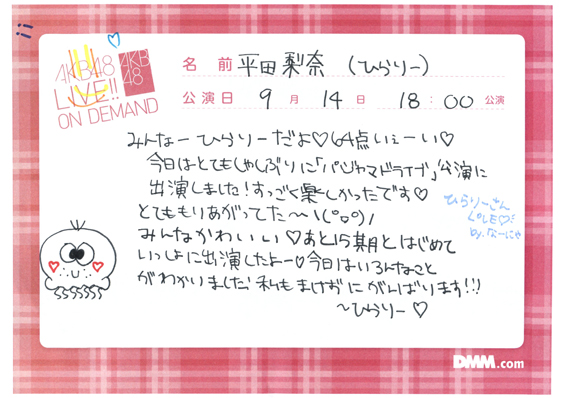 AKB48
LIVE!!
ON DEMAND
AKB
48
名 前 平田梨奈 (ひらりー)
公演日 9 月 14 日 18:00 公演
みんなー ひらりーだよ♡64点いぇーい♡
今日はとてもしゃしぶりに「パジャマドライブ」公演に
出演しました!すっごく楽しかったです♡
とてももりあがってた〜\(°▽°)/
みんなかわいい♡あと15期とはじめて
いっしょに出演したよー♡今日はいろんなこと
がわかいました!私もまけずにがんばります!!!
〜ひらりー♡
ひらりーさん
LOVE♡
by.なーにゃ
DMM.com